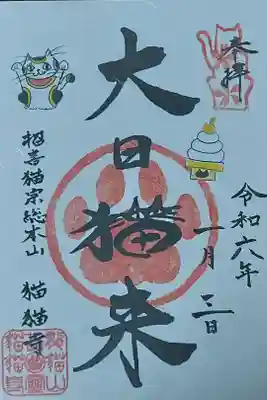 奉拝
令和六年
一月三日
大日猫来
招喜猫宗総本山　猫猫寺